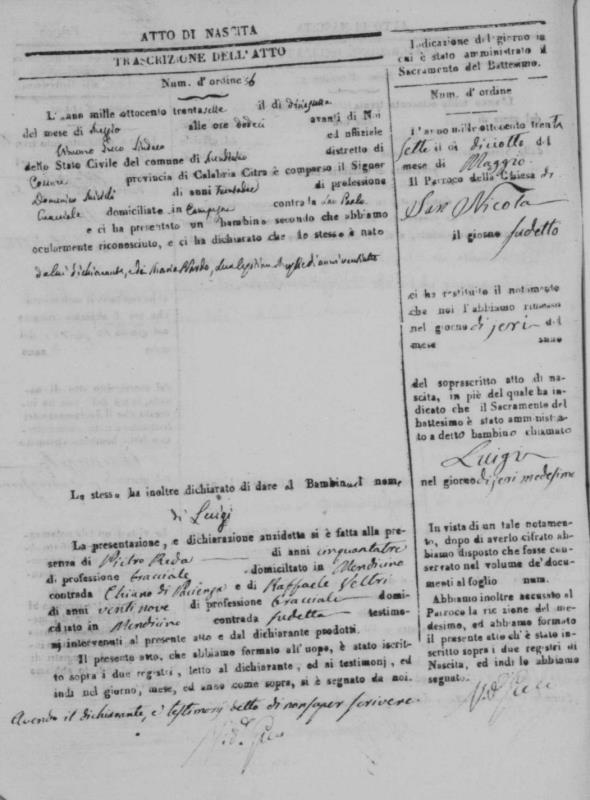 ATTO DI NASCITA
TRASCRIZIONE DELL'ATTO
Num. d'ordine 56
L'anno mille ottocento trentasette il di diciasette
del mese di Maggio alle ore dodeci avanti di Noi
Sindaco ed uffiziale
dello Stato Civile del comune di Mendicino distretto di
Cosenza provincia di Calabria Citra è comparso il Signor
Domenico di anni trentadue di professione
bracciale domiciliato in contrada San Paolo
e ci ha presentato un bambino secondo che abbiamo
ocularmente riconosciuto, e ci ha dichiarato che lo stesso è nato
da lui dichiarante, e da Maria sua legittima Moglie di anni ventisette
Lo stesso ha inoltre dichiarato di dare al Bambino il nome
di Luigi
La presentazione, e dichiarazione anzidetta si è fatta alla pre-
senza di Pietro Reda di anni cinquantatre
di professione bracciale domiciliato in Mendicino
contrada Chiano di e di Raffaele Veltri
di anni ventinove di professione bracciale domi-
ciliato in Mendicino contrada sudetta testimo-
nj intervenuti al presente atto e dal dichiarante prodotti.
Il presente atto, che abbiamo formato all'uopo, è stato iscrit-
to sopra i due registri, letto al dichiarante, ed ai testimonj, ed
indi nel giorno, mese, ed anno come sopra, si è segnato da noi.
Avendo il dichiarante, e testimonj detto di non saper scrivere.
Indicazione del giorno in
cui è stato amministrato il
Sacramento del Battesimo.
Num. d'ordine
L'anno mille ottocento trenta
sette il di diciotto del
mese di Maggio
Il Parroco della Chiesa di
San Nicola
il giorno sudetto
ci ha restituito il notamento
che noi l'abbiamo rimesso
nel giorno di jeri del
mese anno
del soprascritto atto di na-
scita, in piè del quale ha in-
dicato che il Sacramento del
battesimo è stato amministra-
to a detto bambino chiamato
Luigi
nel giorno di jeri medesimo
In vista di un tale notamen-
to, dopo di averlo cifrato ab-
biamo disposto che fosse con-
servato nel volume de' docu-
menti al foglio num.
Abbiamo inoltre accusato al
Parroco la ricezione del me-
desimo, ed abbiamo formato
il presente atto ch'è stato in-
scritto sopra i due registri di
Nascita, ed indi lo abbiamo
segnato.